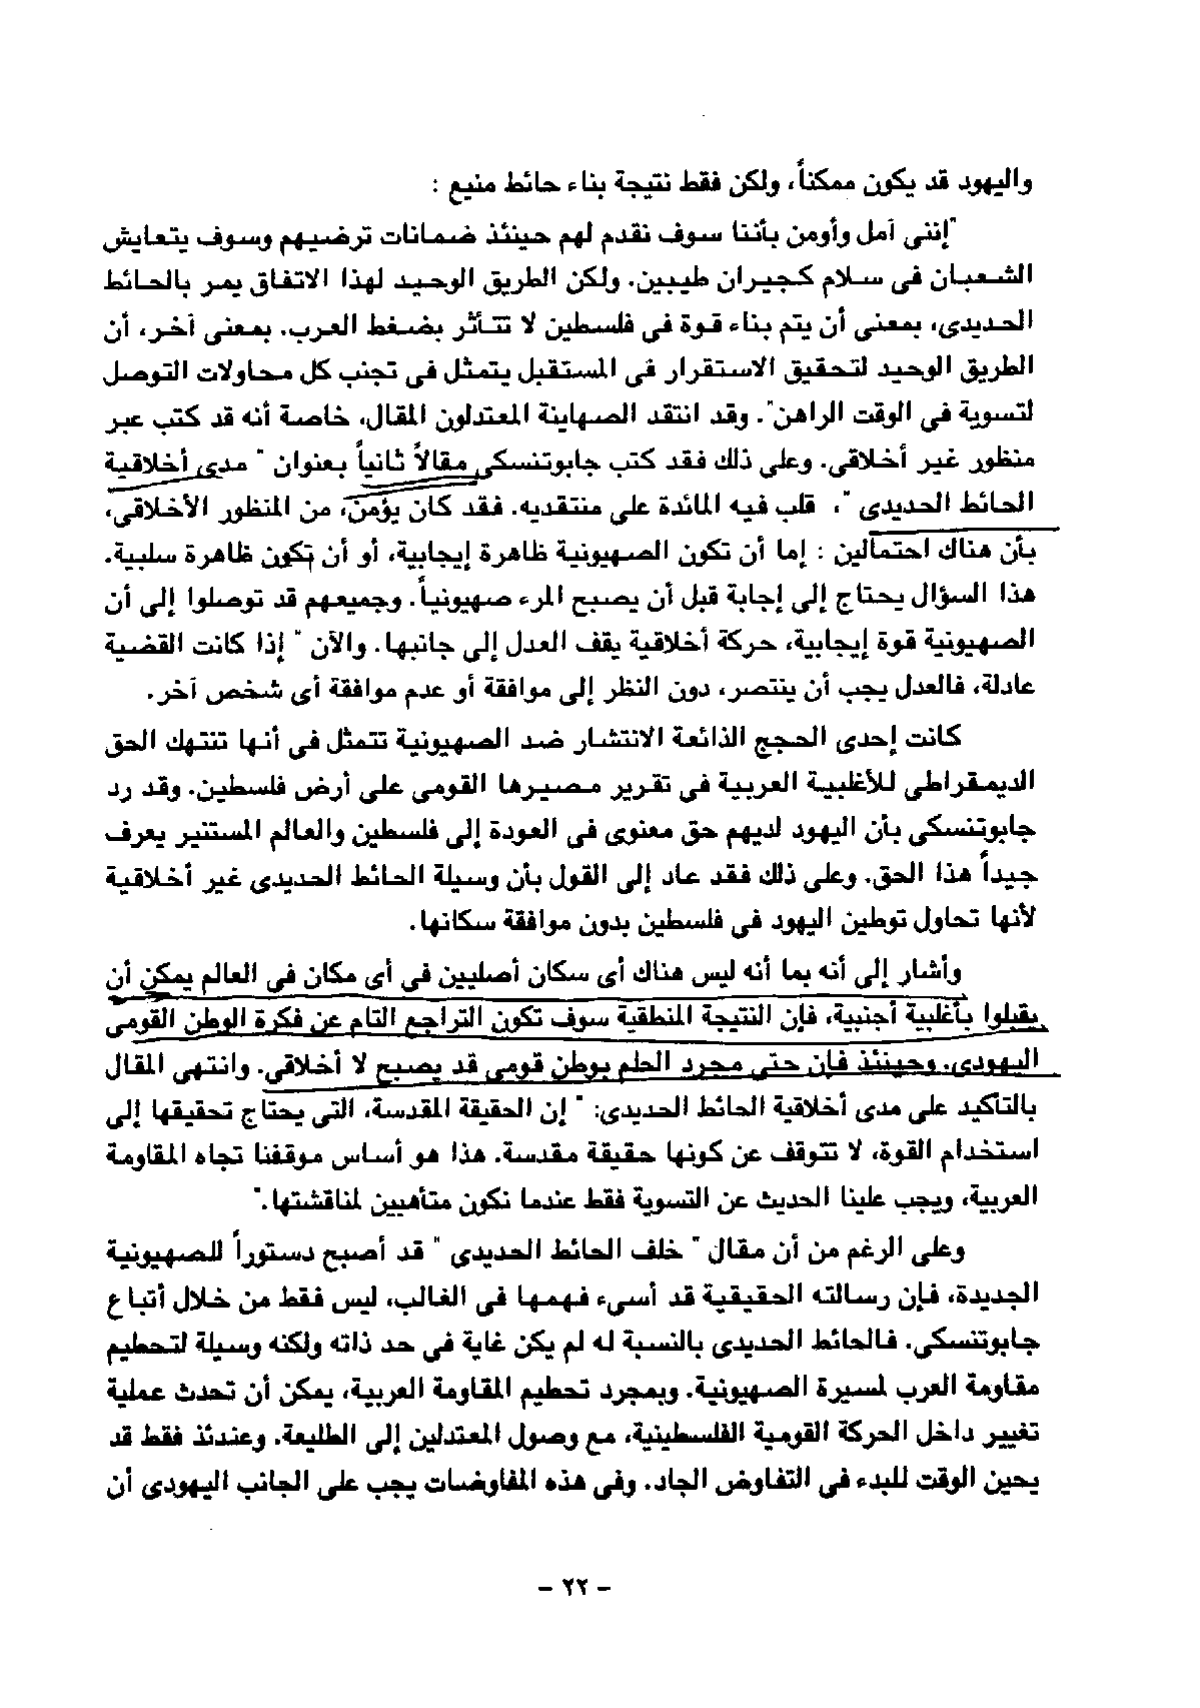 واليهود قد يكون ممكناً، ولكن فقط نتيجة بناء حائط منيع :
"إننى آمل وأومن بأننا سوف نقدم لهم حينئذ ضمانات ترضيهم وسوف يتعايش
الشعبان فى سلام كجيران طيبين. ولكن الطريق الوحيد لهذا الاتفاق يمر بالحائط
الحديدى، بمعنى أن يتم بناء قوة فى فلسطين لا تتأثر بضغط العرب. بمعنى آخر، أن
الطريق الوحيد لتحقيق الاستقرار فى المستقبل يتمثل فى تجنب كل محاولات التوصل
لتسوية فى الوقت الراهن". وقد انتقد الصهاينة المعتدلون المقال، خاصة أنه قد كتب عبر
منظور غير أخلاقى. وعلى ذلك فقد كتب جابوتنسكى مقالاً ثانياً بعنوان " مدى أخلاقية
الحائط الحديدى "، قلب فيه المائدة على منتقديه. فقد كان يؤمن، من المنظور الأخلاقى،
بأن هناك احتمالين : إما أن تكون الصهيونية ظاهرة إيجابية، أو أن تكون ظاهرة سلبية.
هذا السؤال يحتاج إلى إجابة قبل أن يصبح المرء صهيونياً. وجميعهم قد توصلوا إلى أن
الصهيونية قوة إيجابية، حركة أخلاقية يقف العدل إلى جانبها. والآن " إذا كانت القضية
عادلة، فالعدل يجب أن ينتصر، دون النظر إلى موافقة أو عدم موافقة أى شخص آخر.
كانت إحدى الحجج الذائعة الانتشار ضد الصهيونية تتمثل فى أنها تنتهك الحق
الديمقراطى للأغلبية العربية فى تقرير مصيرها القومى على أرض فلسطين. وقد رد
جابوتنسكى بأن اليهود لديهم حق معنوى فى العودة إلى فلسطين والعالم المستنير يعرف
جيداً هذا الحق. وعلى ذلك فقد عاد إلى القول بأن وسيلة الحائط الحديدى غير أخلاقية
لأنها تحاول توطين اليهود فى فلسطين بدون موافقة سكانها.
وأشار إلى أنه بما أنه ليس هناك أى سكان أصليين فى أى مكان فى العالم يمكن أن
يقبلوا بأغلبية أجنبية، فإن النتيجة المنطقية سوف تكون التراجع التام عن فكرة الوطن القومى
اليهودى. وحينئذ فإن حتى مجرد الحلم بوطن قومى قد يصبح لا أخلاقى. وانتهى المقال
بالتأكيد على مدى أخلاقية الحائط الحديدى: " إن الحقيقة المقدسة، التى يحتاج تحقيقها إلى
استخدام القوة، لا تتوقف عن كونها حقيقة مقدسة. هذا هو أساس موقفنا تجاه المقاومة
العربية، ويجب علينا الحديث عن التسوية فقط عندما نكون متأهبين لمناقشتها."
وعلى الرغم من أن مقال " خلف الحائط الحديدى " قد أصبح دستوراً للصهيونية
الجديدة، فإن رسالته الحقيقية قد أسىء فهمها فى الغالب، ليس فقط من خلال أتباع
جابوتنسكى. فالحائط الحديدى بالنسبة له لم يكن غاية فى حد ذاته ولكنه وسيلة لتحطيم
مقاومة العرب لمسيرة الصهيونية. وبمجرد تحطيم المقاومة العربية، يمكن أن تحدث عملية
تغيير داخل الحركة القومية الفلسطينية، مع وصول المعتدلين إلى الطليعة. وعندئذ فقط قد
يحين الوقت للبدء فى التفاوض الجاد. وفى هذه المفاوضات يجب على الجانب اليهودى أن
- ٢٢ -